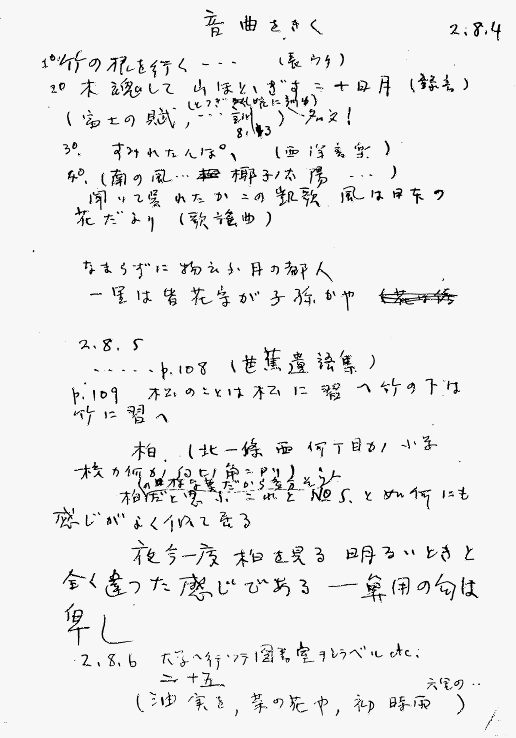 音曲をきく 2.8.4
1o. 竹の根を行く・・・ (長ウタ)
2o 木魂して 山ほととぎす 二十日月 (録音)
(富士の賦, ・・・・ 訓) 名文!
8.13
3o. すみれたんぽゝ (西洋音楽)
4o. (南の風・・・ 椰子ノ太陽 ・・・)
聞いて呉れたかこの凱歌 風は日本の
花だより (歌謡曲)
なまらずに物云ふ月の都人
一里は皆花守が子孫かや
2.8.5
・・・・・p.108 (芭蕉遺語集)
p.109 松のことは松に習へ竹の下は
竹に習へ
柏. (北一條西何丁目か, 小学
校か何か
柏だと思ふ. これと No 5. と如何にも
感じがよく似て居る
夜今一度 柏を見る 明るいときと
全く違つた感じである 一 鼻用の匂は
卑し
2.8.6 大学ヘ行ツテ図書室ヲシラベル etc.
二十五
(油 実を, 菜の花や, 初時雨 )
六里の・・